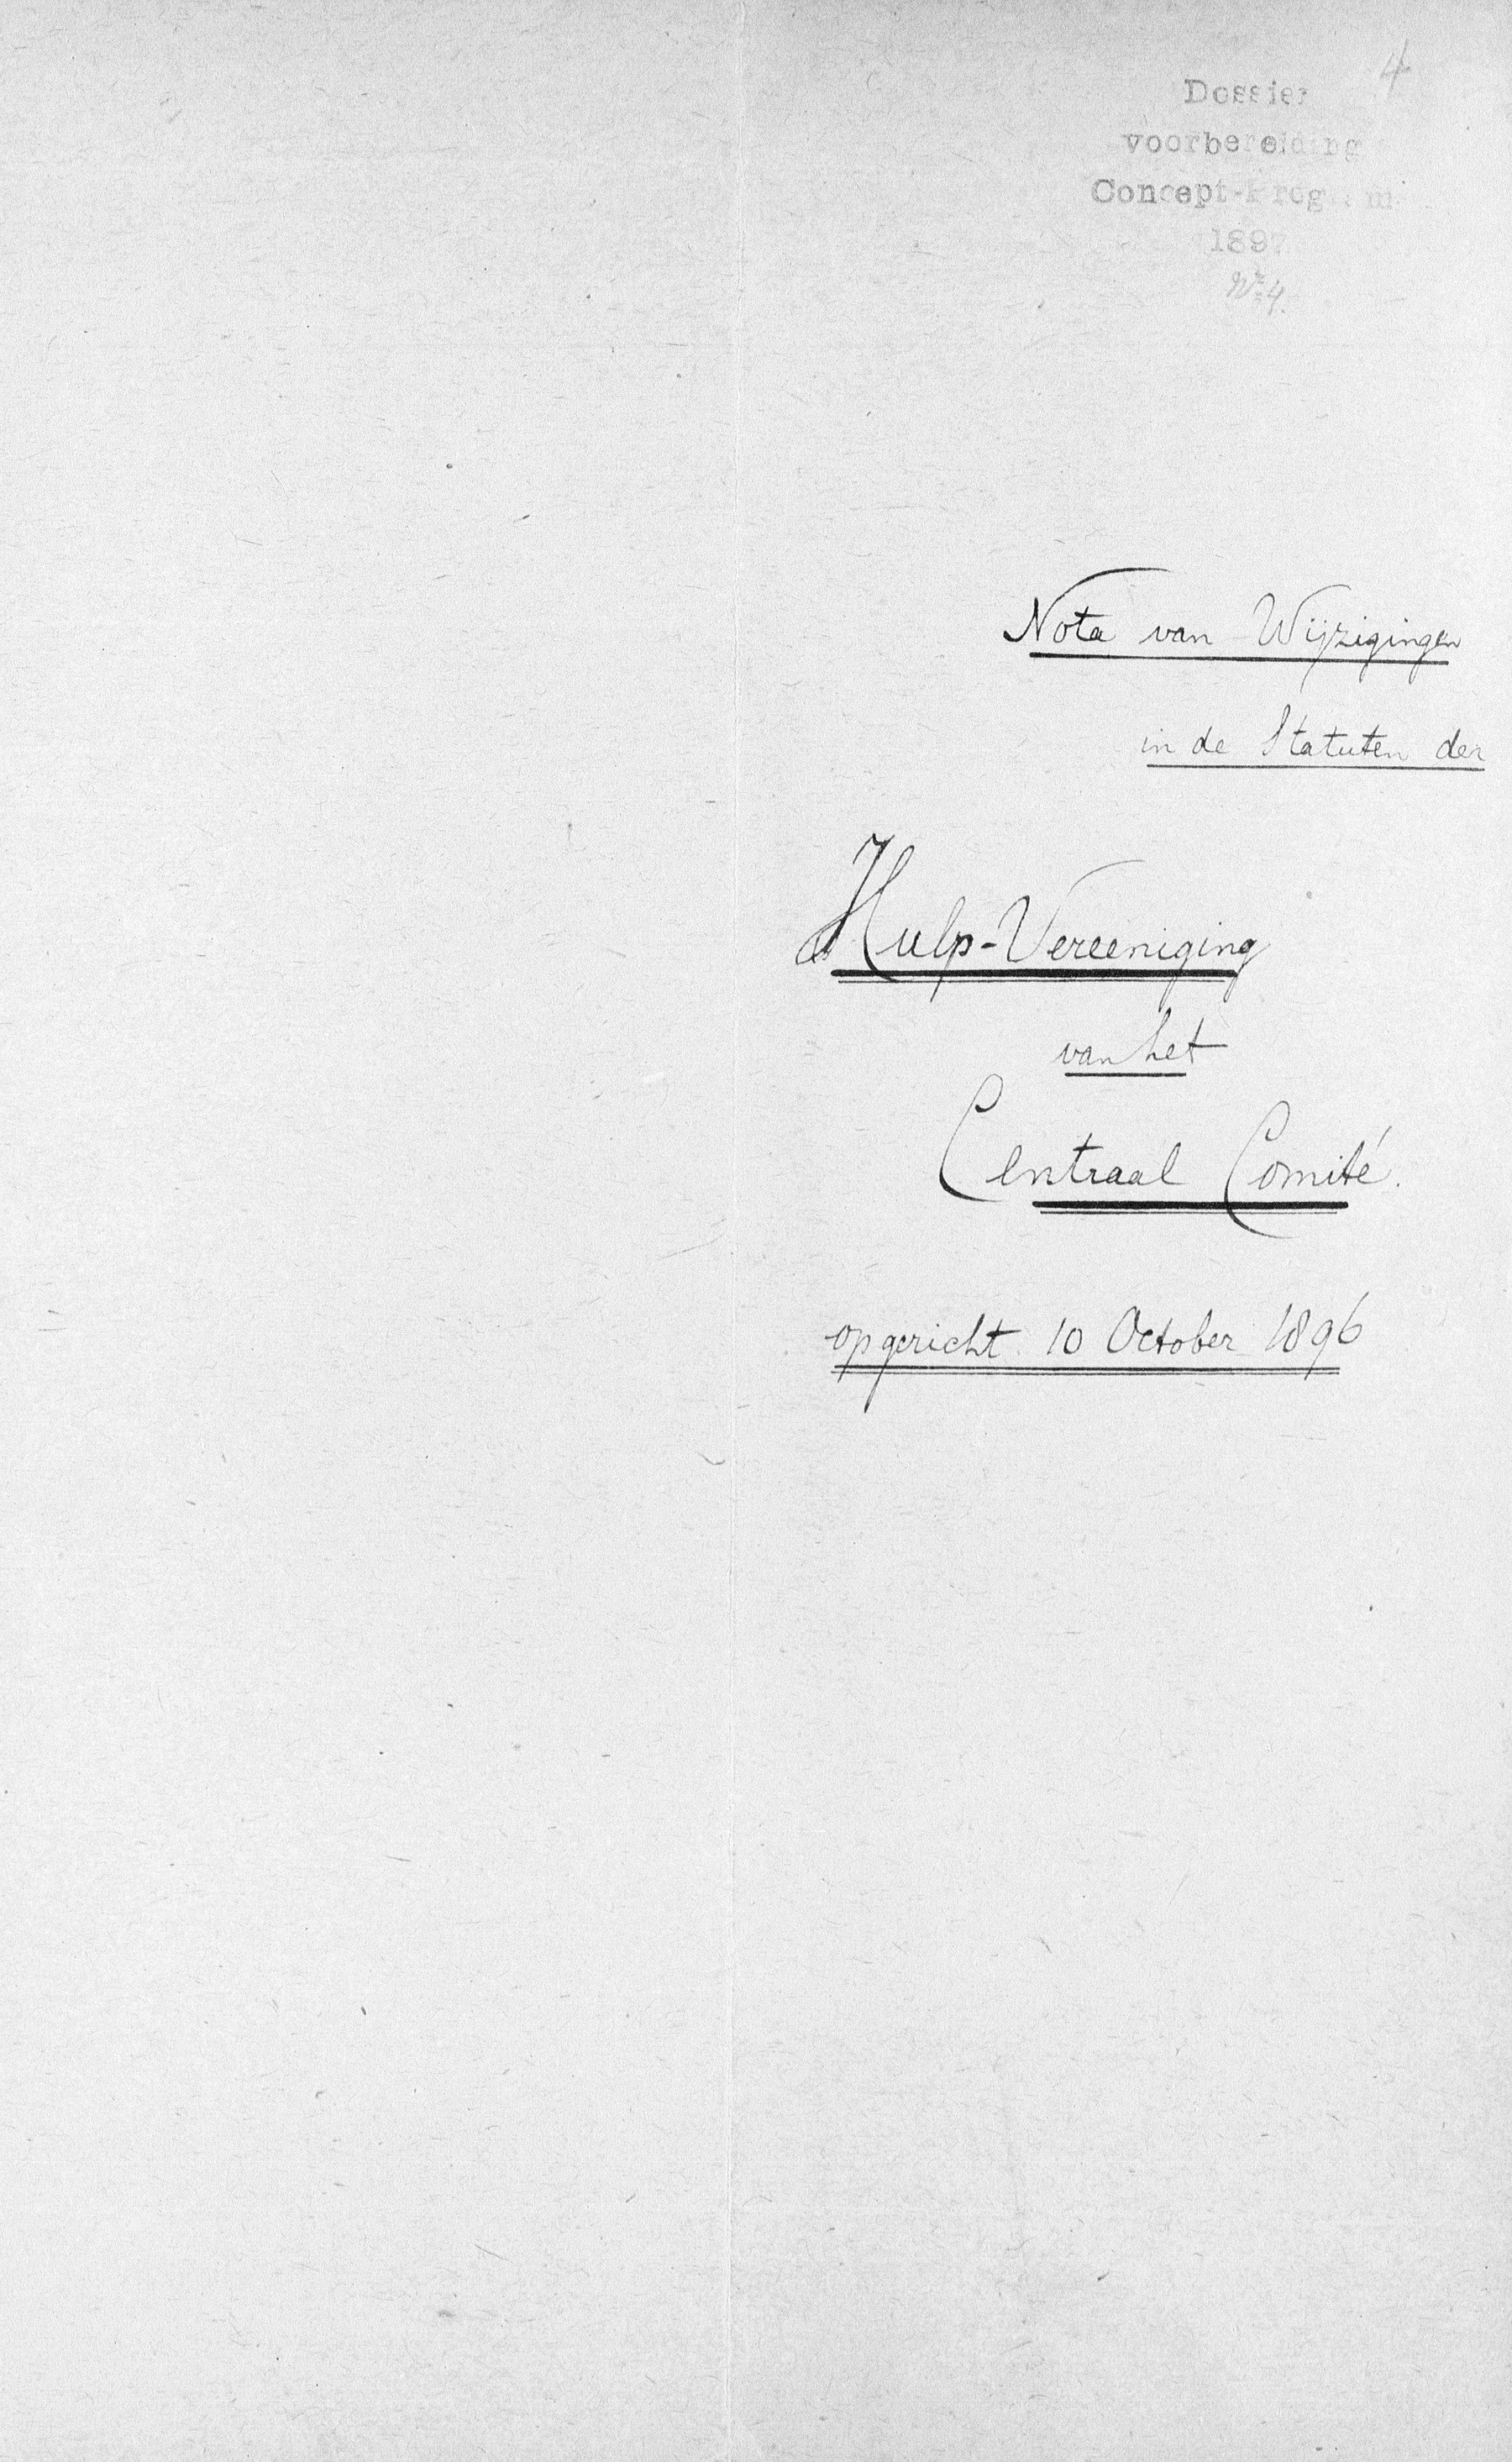 4
Dossier
voorbereiding
Concept-Program
1897
No 4.
Nota van Wijzigingen
in de Statuten der
Hulp-Vereeniging
van het
Centraal Comité.
opgericht 10 October 1896